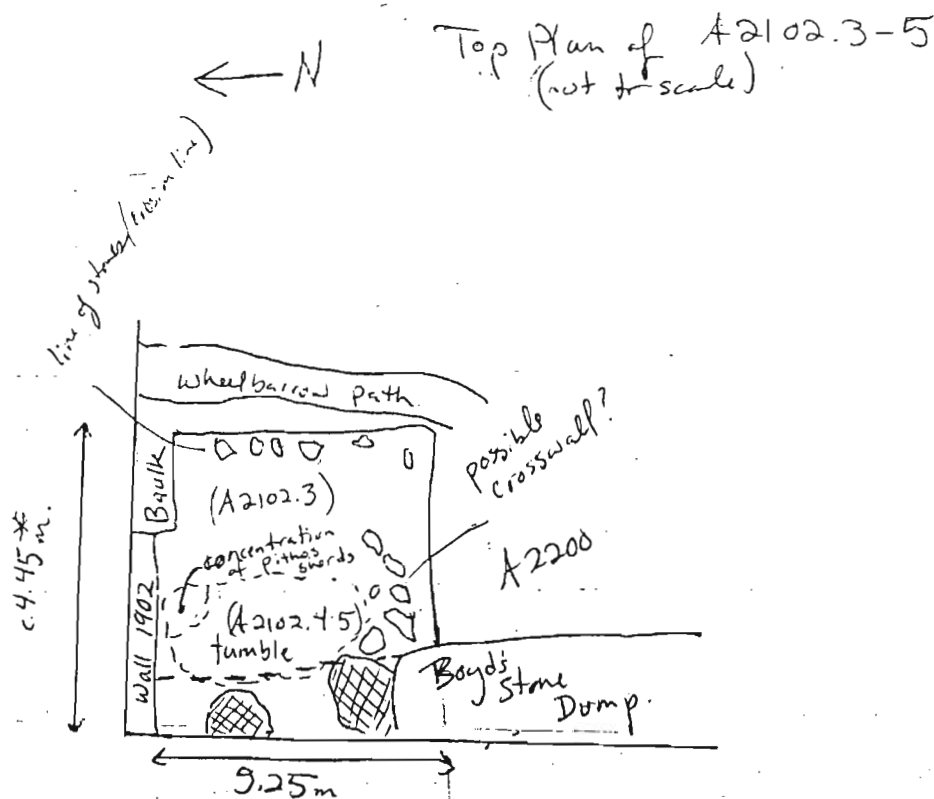 Top Plan of A2102.3-5
(not to scale)
N
line of stones/erosion line)
wheelbarrow path.
possible
crosswall?
Baulk
(A2102.3)
c.4.45*
m.
concentration
of pithos
sherds
A2200
Wall 1902
(A2102.4-5)
tumble
Boyd's
Stone
Dump.
9.25m